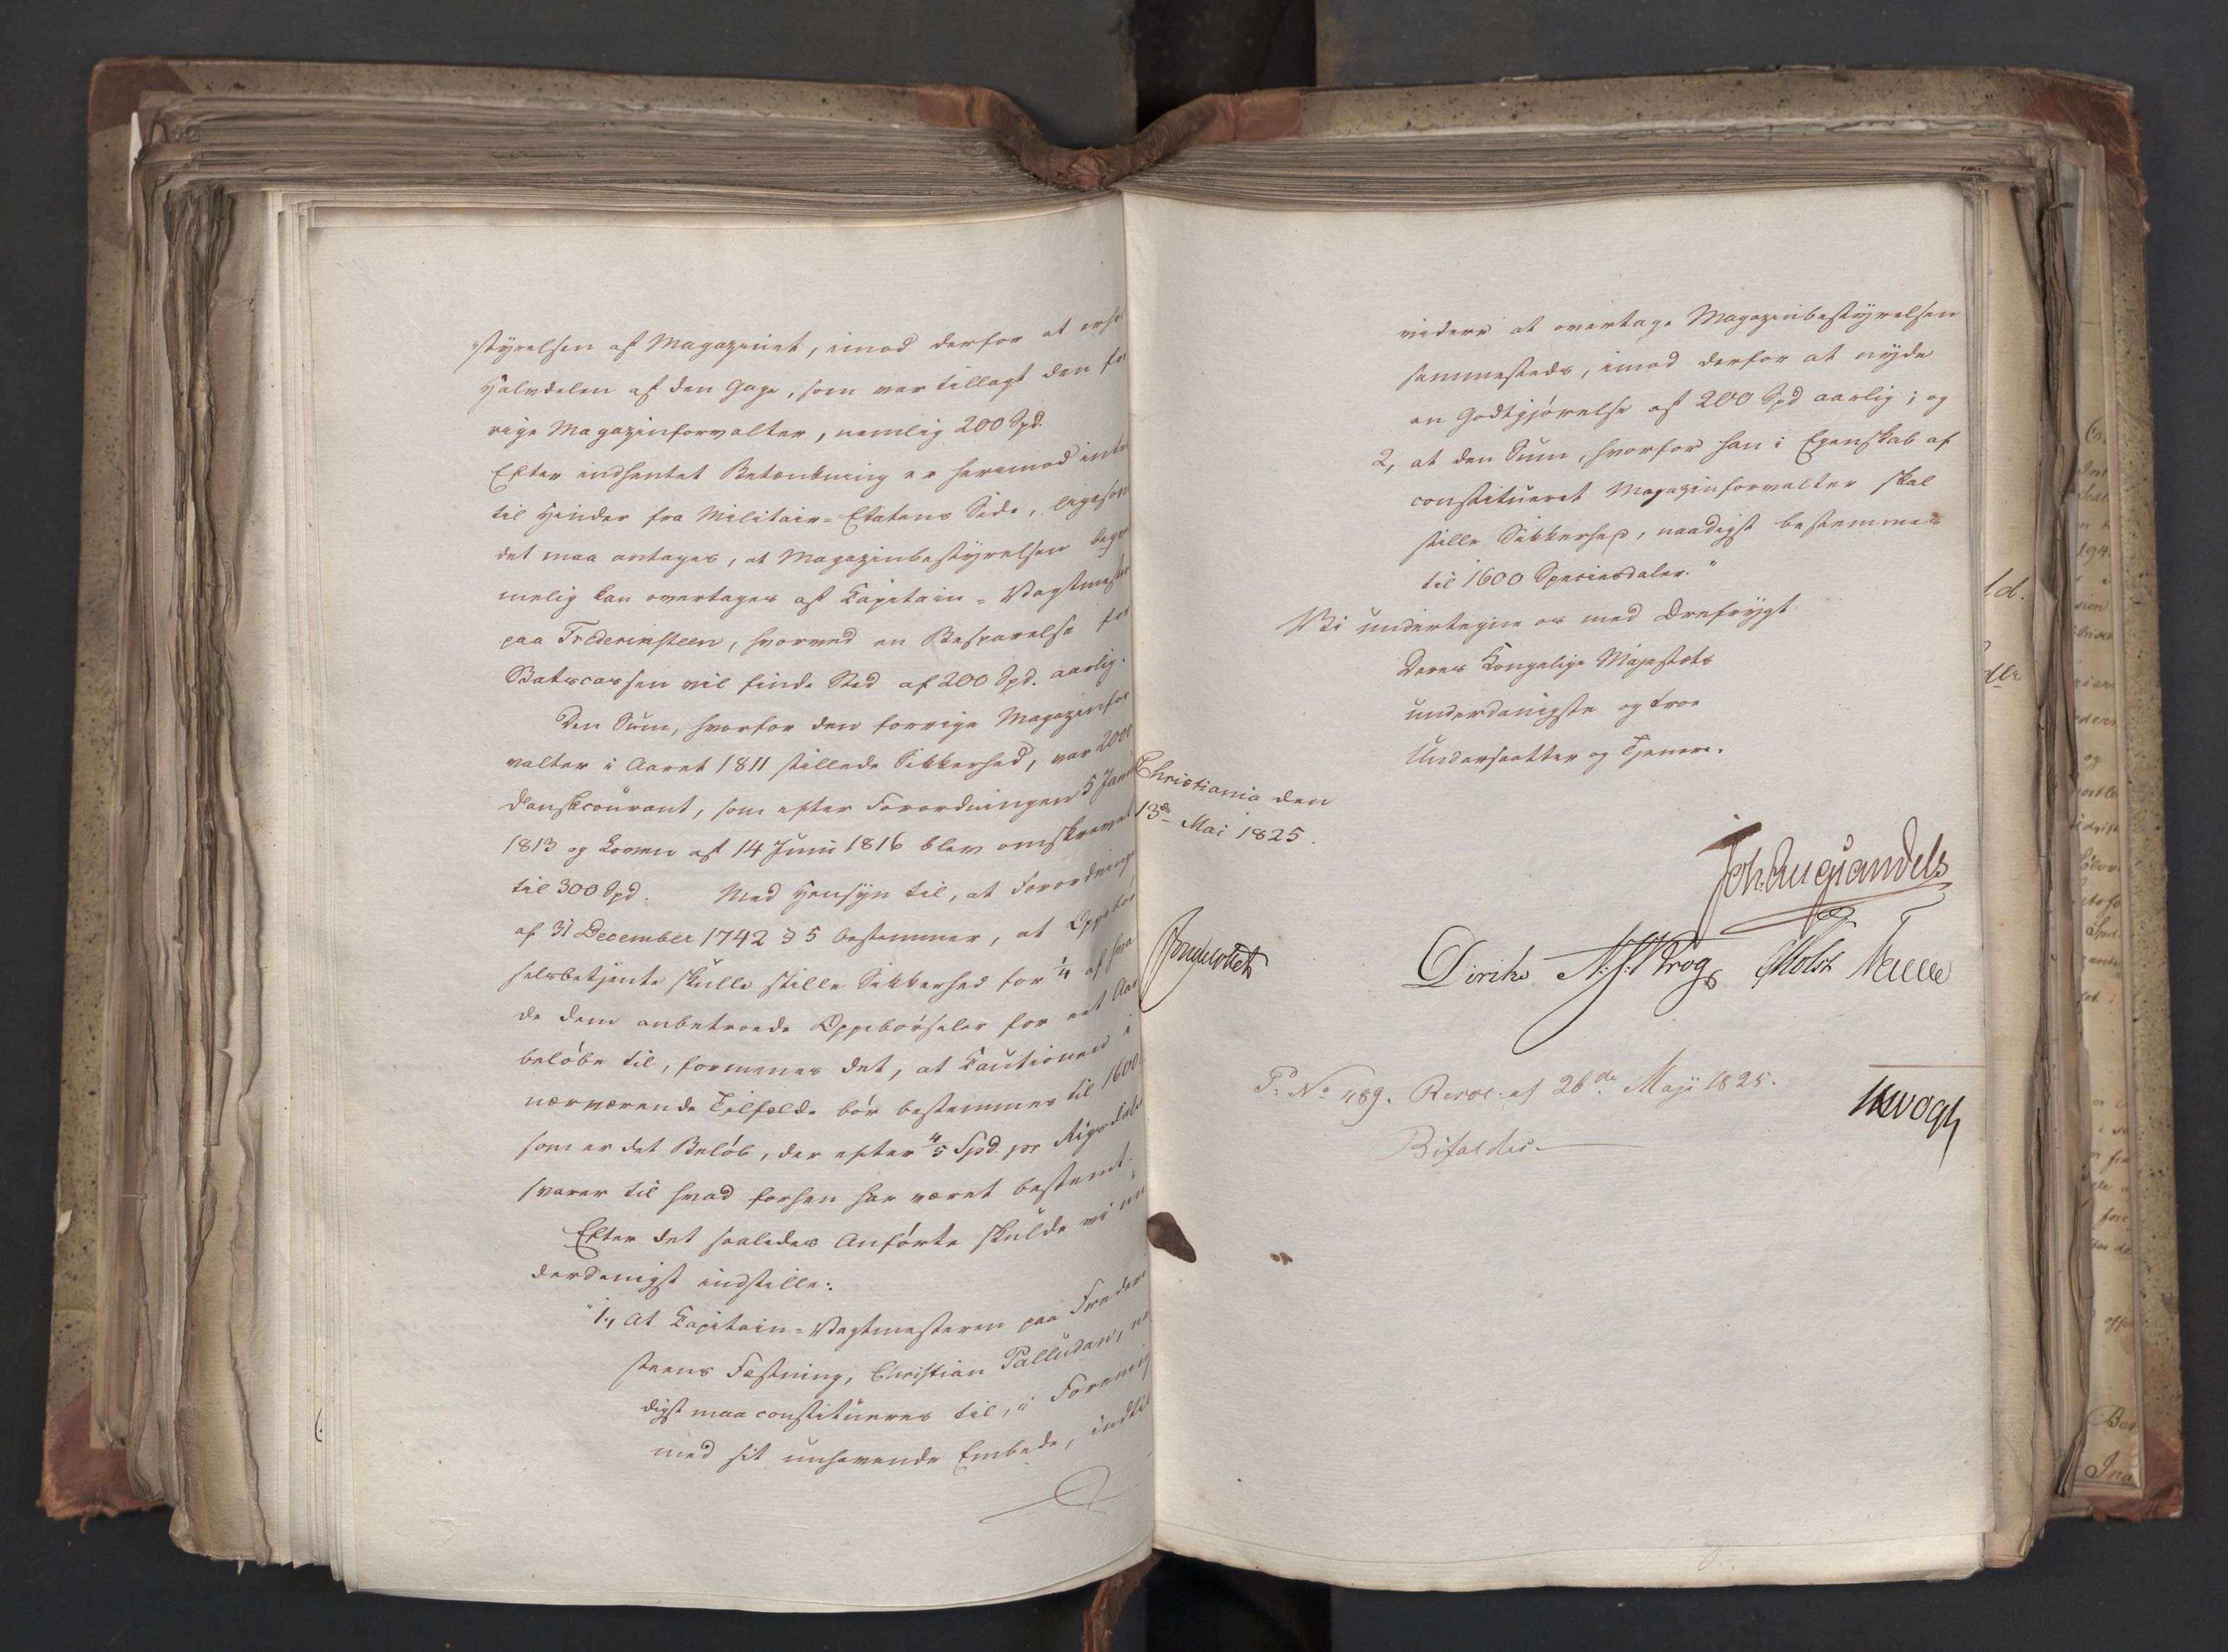 styrelsen af Magazinet, imod derfor at erhol
Halvdelen af den Gage, som var tillagt den for
rige Magazinforvalter, nemlig 200 Spd.
Efter indhentet Betænkning er herimod intet
til Hinder fra Militair-Etatens Side, ligesom
det maa antages, at Magazinbestyrelsen beqve
melig kan overtages af Kapitain-Vagtmester
paa Frederiksteen, hvorved en Besparelse for
Statscassen vil finde Sted af 200 Spd. aarlig.
Den Sum, hvorfor den forrige Magazinfor
valter i Aaret 1811 stillede Sikkerhed, var 2000
danskcourant, som efter Forordningen 5 Janu
1813 og Loven af 14 Juni 1816 blev omskrevet
til 300 Spd. Med Hensyn til, at Forordninge
af 31 December 1742 § 5 bestemmer, at Oppebør
selsbetjente skulle stille Sikkerhed for 1/4 af hva
de dem anbetroede Oppebørseler for eet Aar
beløbe til, formenes det, at Kautionen i
nærværende Tilfælde bør bestemmes til 1600
som er det Beløb, der efter 4/5 Spd. pr Rigsdale
svarer til hvad forhen har været bestemt.
Efter det saaledes Anførte skulde vi un
derdanigst indstille:
"1., At Kapitain-Vagtmesteren paa Frederi
steens Fæstning, Christian Palludan, naa
digst maa constitueres til, i Forening
med sit unhavende Embede, indtil
videre at overtage Magazinbestyrelsen
sammesteds, imod derfor at nyde
en Godtgjørelse af 200 Spd aarlig; og
2, at den Sum, hvorfor han i Egenskab af
constitueret Magazinforvalter skal
stille Sikkerhed, naadigst bestemmes
til 1600 Speciesdaler."
Vi undertegne os med Ærefrygt
Deres Kongelige Majestæts
underdanigste og troe
Undersaatter og Tjenere.
Christiania den
13de Mai 1825.
Joh. Aug. Sandels
Diriks N. J. Krog Holst
P: No 489. Resol. af 26de Maji 1825.
Bifaldes